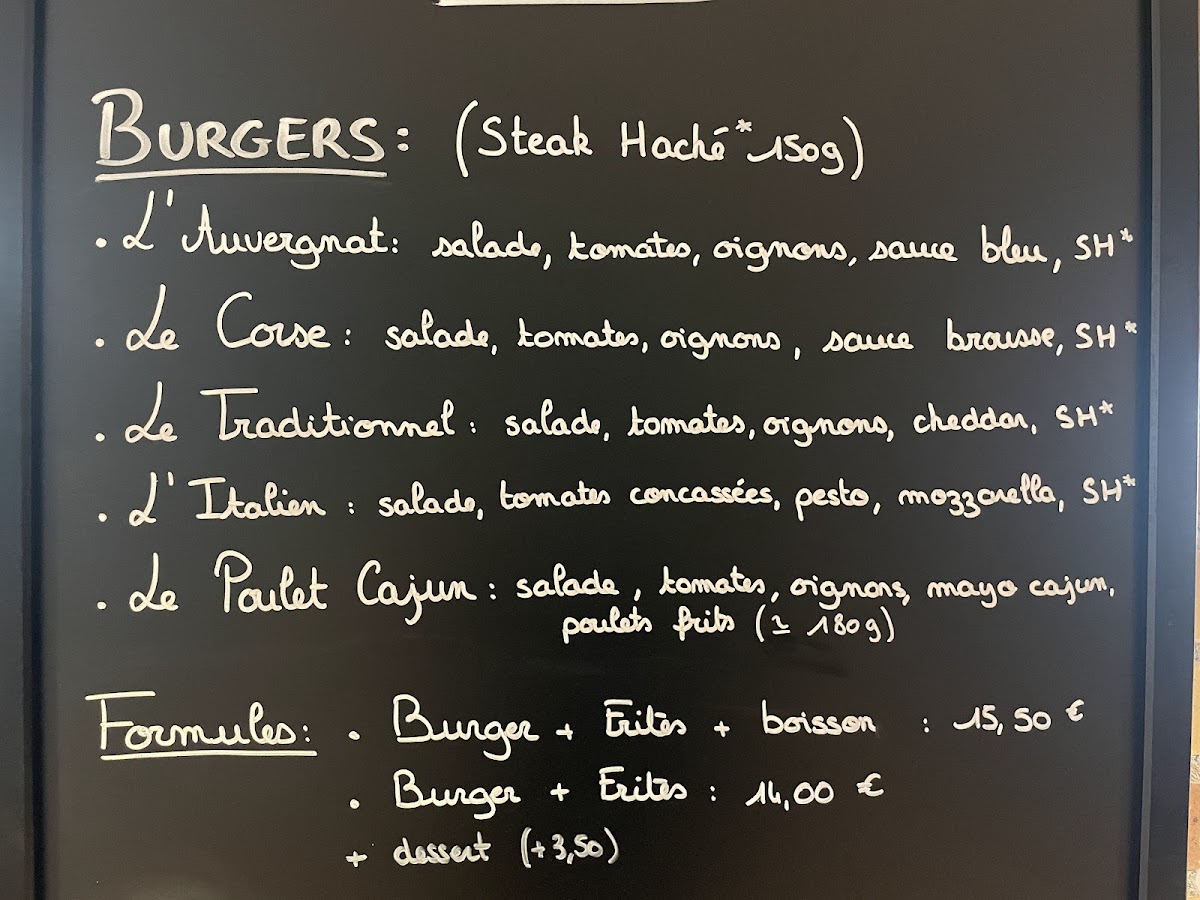 BURGERS: (Steak Haché* 150g)
• L'Auvergnat: salade, tomates, oignons, sauce bleu, SH*
• Le Corse : salade, tomates, oignons, sauce brousse, SH*
• Le Traditionnel : salade, tomates, oignons, cheddar, SH*
• L'Italien : salade, tomates concassées, pesto, mozzarella, SH*
• Le Poulet Cajun : salade, tomates, oignons, mayo cajun,
poulets frits (≃ 180g)
Formules: • Burger + Frites + boisson : 15,50 €
• Burger + Frites : 14,00 €
+ dessert (+3,50)